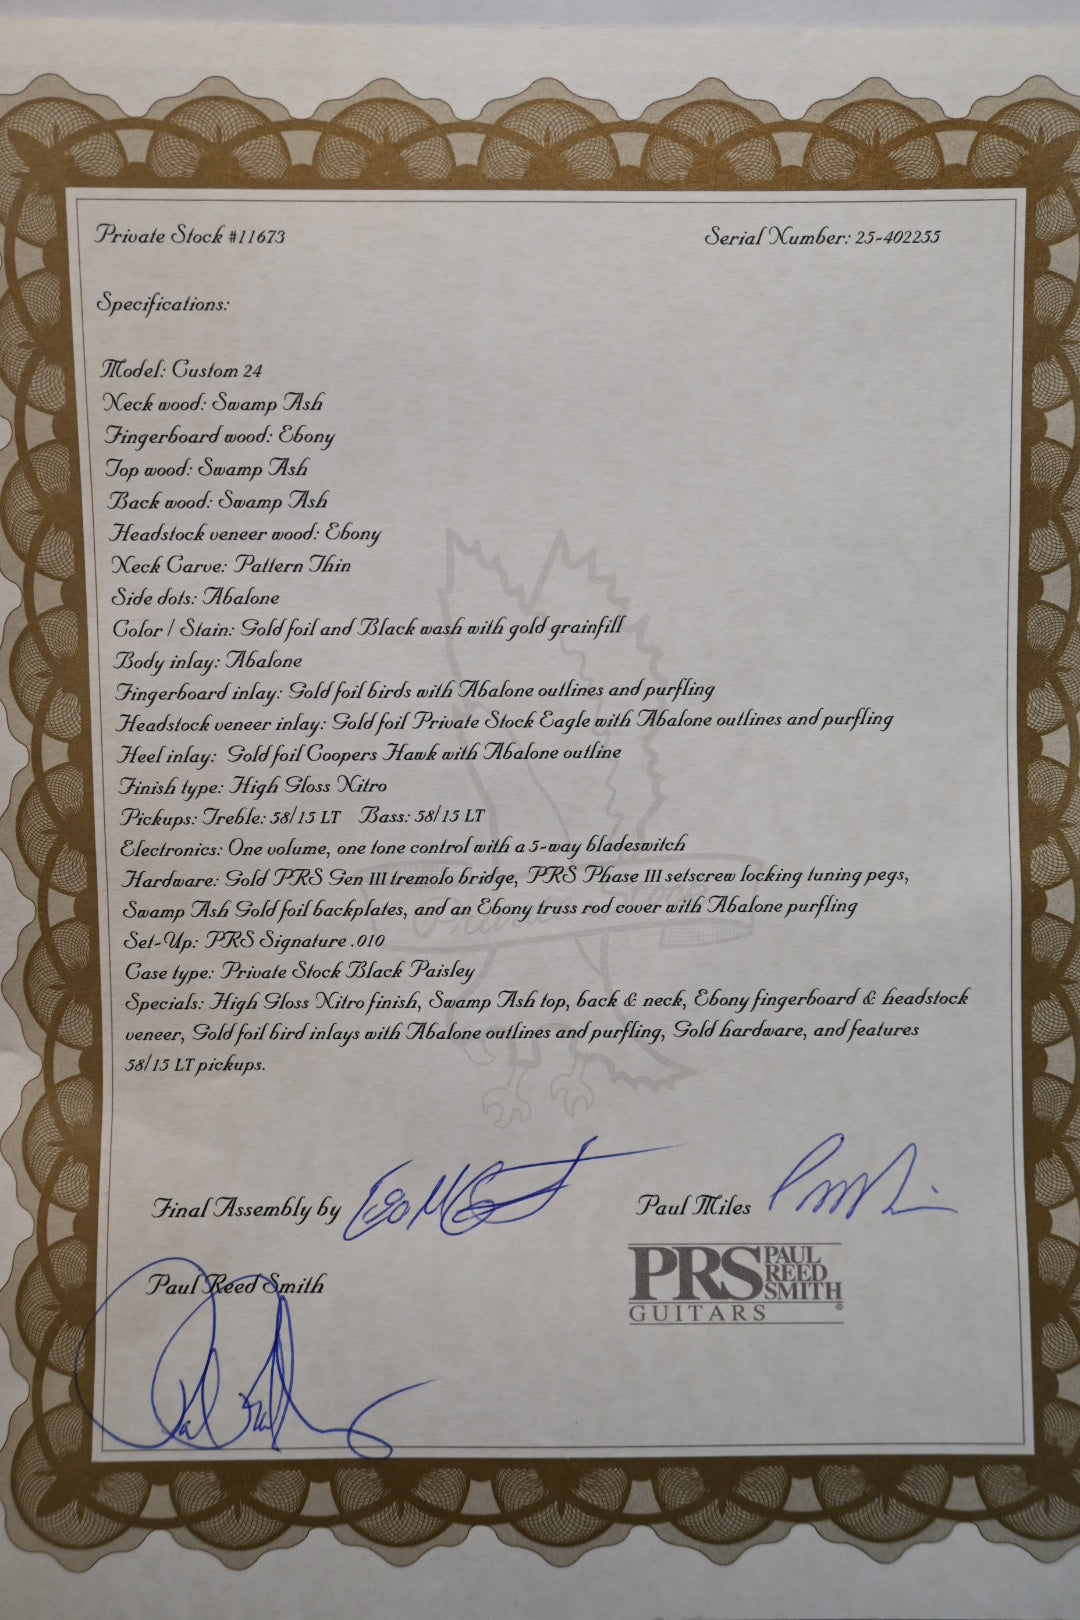 Private Stock #11673
Serial Number: 25-402255
Specifications:
Model: Custom 24
Neck wood: Swamp Ash
Fingerboard wood: Ebony
Top wood: Swamp Ash
Back wood: Swamp Ash
Headstock veneer wood: Ebony
Neck Carve: Pattern Thin
Side dots: Abalone
Color / Stain: Gold foil and Black wash with gold grainfill
Body inlay: Abalone
Fingerboard inlay: Gold foil birds with Abalone outlines and purfling
Headstock veneer inlay: Gold foil Private Stock Eagle with Abalone outlines and purfling
Heel inlay: Gold foil Coopers Hawk with Abalone outline
Finish type: High Gloss Nitro
Pickups: Treble: 58/15 LT Bass: 58/15 LT
Electronics: One volume, one tone control with a 5-way bladeswitch
Hardware: Gold PRS Gen III tremolo bridge, PRS Phase III setscrew locking tuning pegs,
Swamp Ash Gold foil backplates, and an Ebony truss rod cover with Abalone purfling
Set-Up: PRS Signature .010
Case type: Private Stock Black Paisley
Specials: High Gloss Nitro finish, Swamp Ash top, back & neck, Ebony fingerboard & headstock
veneer, Gold foil bird inlays with Abalone outlines and purfling, Gold hardware, and features
58/15 LT pickups.
Final Assembly by
Paul Miles
Paul Reed Smith
PRS PAUL REED SMITH
GUITARS ®